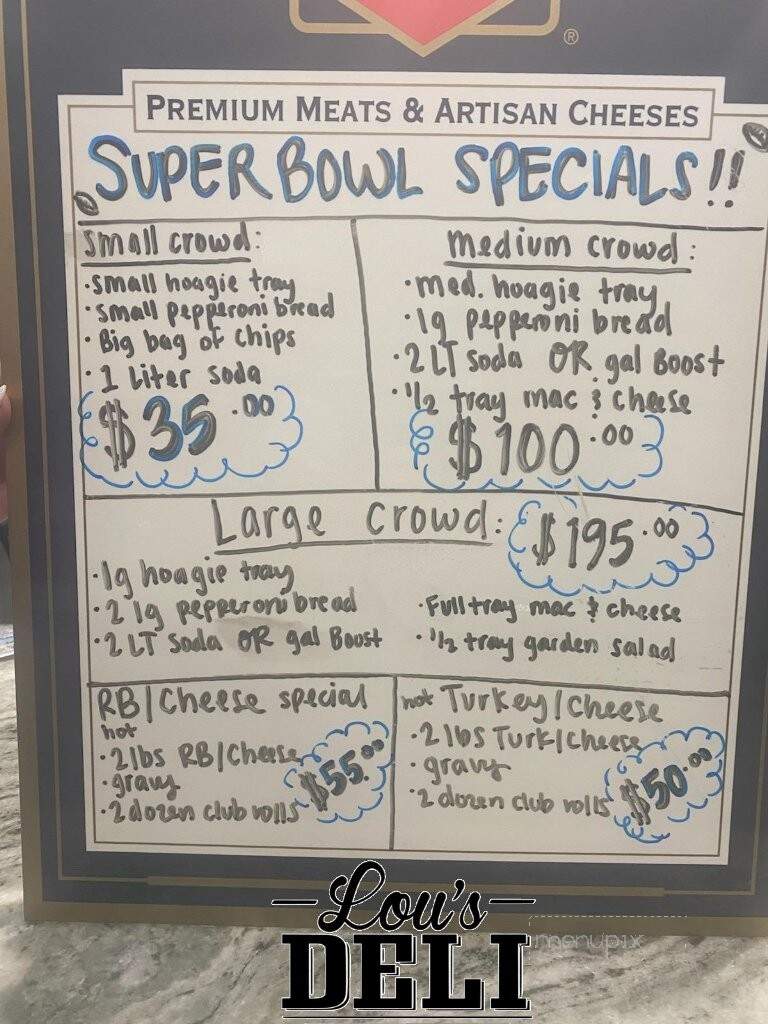 ®
PREMIUM MEATS & ARTISAN CHEESES
SUPER BOWL SPECIALS!!
small crowd:
·small hoagie tray
·small pepperoni bread
·Big bag of chips
·1 liter soda
$35.00
medium crowd:
·med. hoagie tray
·lg pepperoni bread
·2 LT soda OR gal Boost
·1/2 tray mac & cheese
$100.00
Large crowd: $195.00
·lg hoagie tray
·2 lg pepperoni bread
·2 LT Soda OR gal Boost
·Full tray mac & cheese
·1/2 tray garden salad
RB/Cheese special
hot
·2 lbs RB/Cheese
·gravy
·2 dozen club rolls
$55.00
hot Turkey/Cheese
·2 lbs Turk/Cheese
·gravy
·2 dozen club rolls
$50.00
Lou's
DELI
menupix